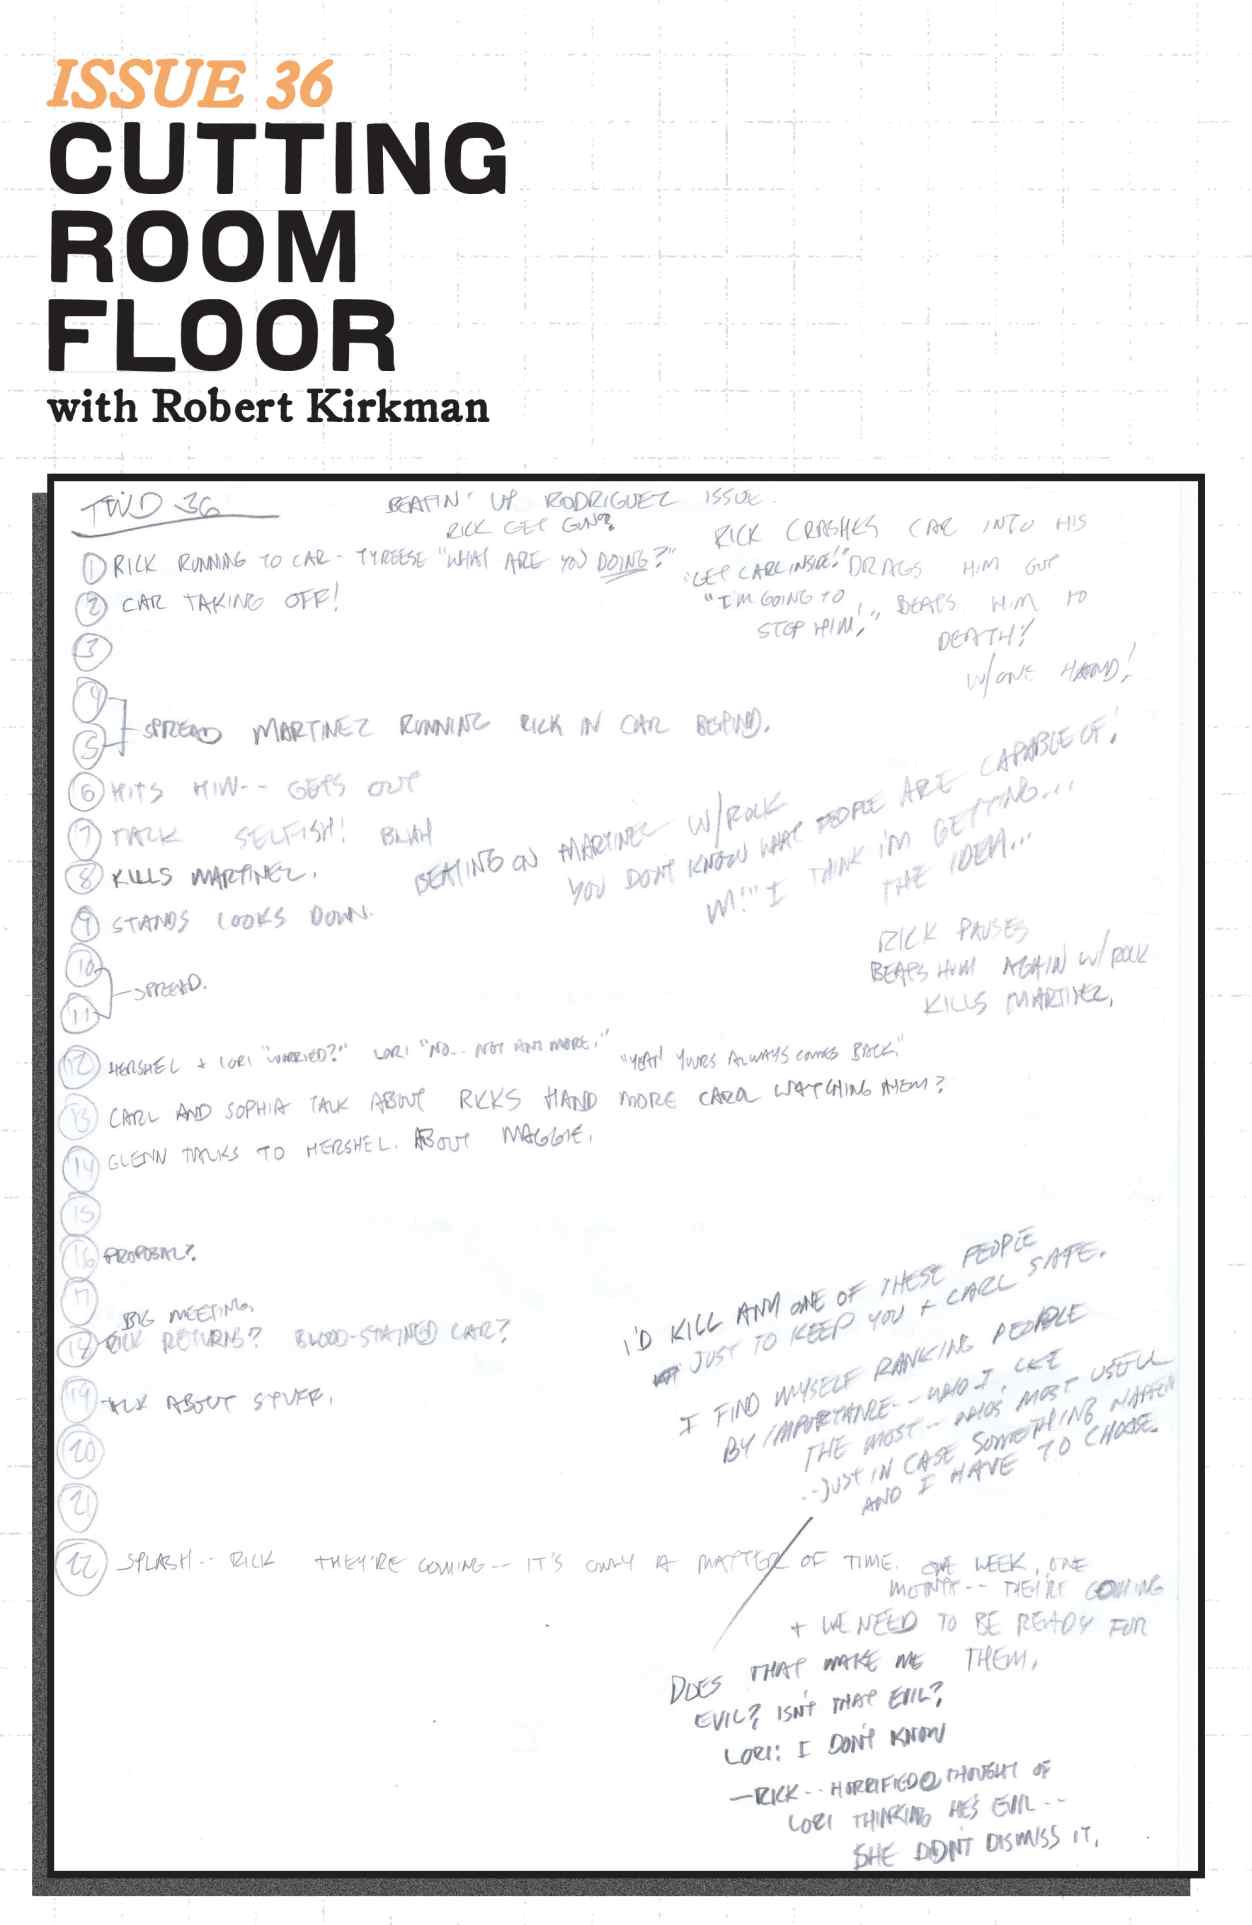 ISSUE 36
CUTTING
ROOM
FLOOR
with Robert Kirkman
TWD 36
BEATIN' UP RODRIGUEZ ISSUE.
RICK GET GUN?
RICK CRASHES CAR INTO HIS
① RICK RUNNING TO CAR - TYREESE "WHAT ARE YOU DOING?"
"GET CARL INSIDE!" DRAGS HIM OUT
② CAR TAKING OFF!
"I'M GOING TO BEATS HIM TO
STOP HIM!" DEATH!
③
W/ONE HAND!
④
⑤ SPREAD MARTINEZ RUNNING RICK IN CAR BEHIND.
⑥ HITS HIM-- GETS OUT
⑦ TALK SELFISH! BLAH
⑧ KILLS MARTINEZ.
BEATING ON MARTINEZ W/ROCK
YOU DON'T KNOW WHAT PEOPLE ARE CAPABLE OF!
I THINK I'M GETTING...
THE IDEA...
⑨ STANDS LOOKS DOWN.
RICK PAUSES
BEATS HIM AGAIN W/ROCK
KILLS MARTINEZ.
⑩
⑪ SPREAD.
⑫ HERSHEL + LORI "WORRIED?" LORI "NO... NOT ANY MORE." "YEAH YOURS ALWAYS COMES BACK."
⑬ CARL AND SOPHIA TALK ABOUT RICKS HAND MORE CAROL WATCHING THEM?
⑭ GLENN TALKS TO HERSHEL. ABOUT MAGGIE.
⑮
⑯ PROPOSAL?
⑰
BIG MEETING.
⑱ RICK RETURNS? BLOOD-STAINED CAR?
⑲ TALK ABOUT STUFF.
⑳
㉑
I'D KILL ANY ONE OF THESE PEOPLE
JUST TO KEEP YOU + CARL SAFE.
I FIND MYSELF RANKING PEOPLE
BY IMPORTANCE-- WHO I LIKE
THE MOST-- WHO'S MOST USEFULL
--JUST IN CASE SOMETHING HAPPEN
AND I HAVE TO CHOOSE.
㉒ SPLASH-- RICK THEY'RE COMING-- IT'S ONLY A MATTER OF TIME. ONE WEEK, ONE
MONTH-- THEY'RE COMING
+ WE NEED TO BE READY FOR
THEM.
DOES THAT MAKE ME
EVIL? ISN'T THAT EVIL?
LORI: I DON'T KNOW
—RICK-- HORRIFIED @ THOUGHT OF
LORI THINKING HE'S EVIL--
SHE DIDN'T DISMISS IT.